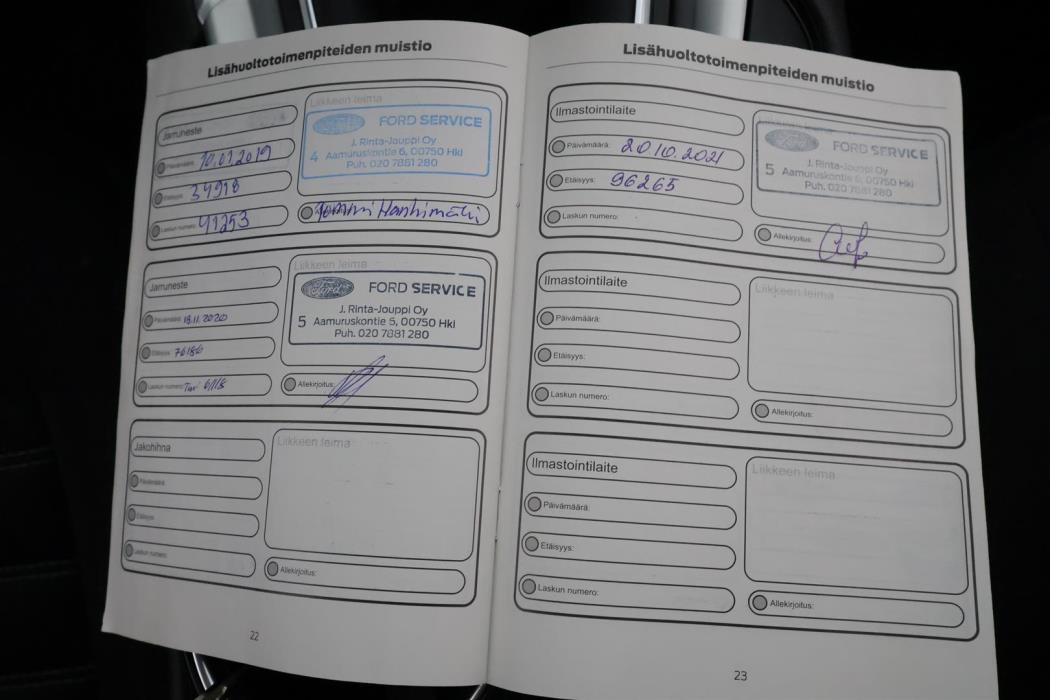 Lisähuoltotoimenpiteiden muistio
Jarruneste
Päivämäärä: 10.01.2019
Etäisyys: 34918
Laskun numero: 41253
Liikkeen leima
Ford
FORD SERVICE
J. Rinta-Jouppi Oy
4 Aamuruskontie 6, 00750 Hki
Puh. 020 7881 280
Jarruneste
Päivämäärä: 18.11.2020
Etäisyys: 76186
Laskun numero:
Liikkeen leima
Ford
FORD SERVICE
J. Rinta-Jouppi Oy
5 Aamuruskontie 5, 00750 Hki
Puh. 020 7881 280
Allekirjoitus:
Jakohihna
Päivämäärä:
Etäisyys:
Laskun numero:
Liikkeen leima
Allekirjoitus:
22
Lisähuoltotoimenpiteiden muistio
Ilmastointilaite
Päivämäärä: 20.10.2021
Etäisyys: 96265
Laskun numero:
FORD SERVICE
J. Rinta-Jouppi Oy
5 Aamuruskontie 5, 00750 Hki
Puh. 020 7881 280
Allekirjoitus:
Ilmastointilaite
Päivämäärä:
Etäisyys:
Laskun numero:
Liikkeen leima
Allekirjoitus:
Ilmastointilaite
Päivämäärä:
Etäisyys:
Laskun numero:
Liikkeen leima
Allekirjoitus:
23